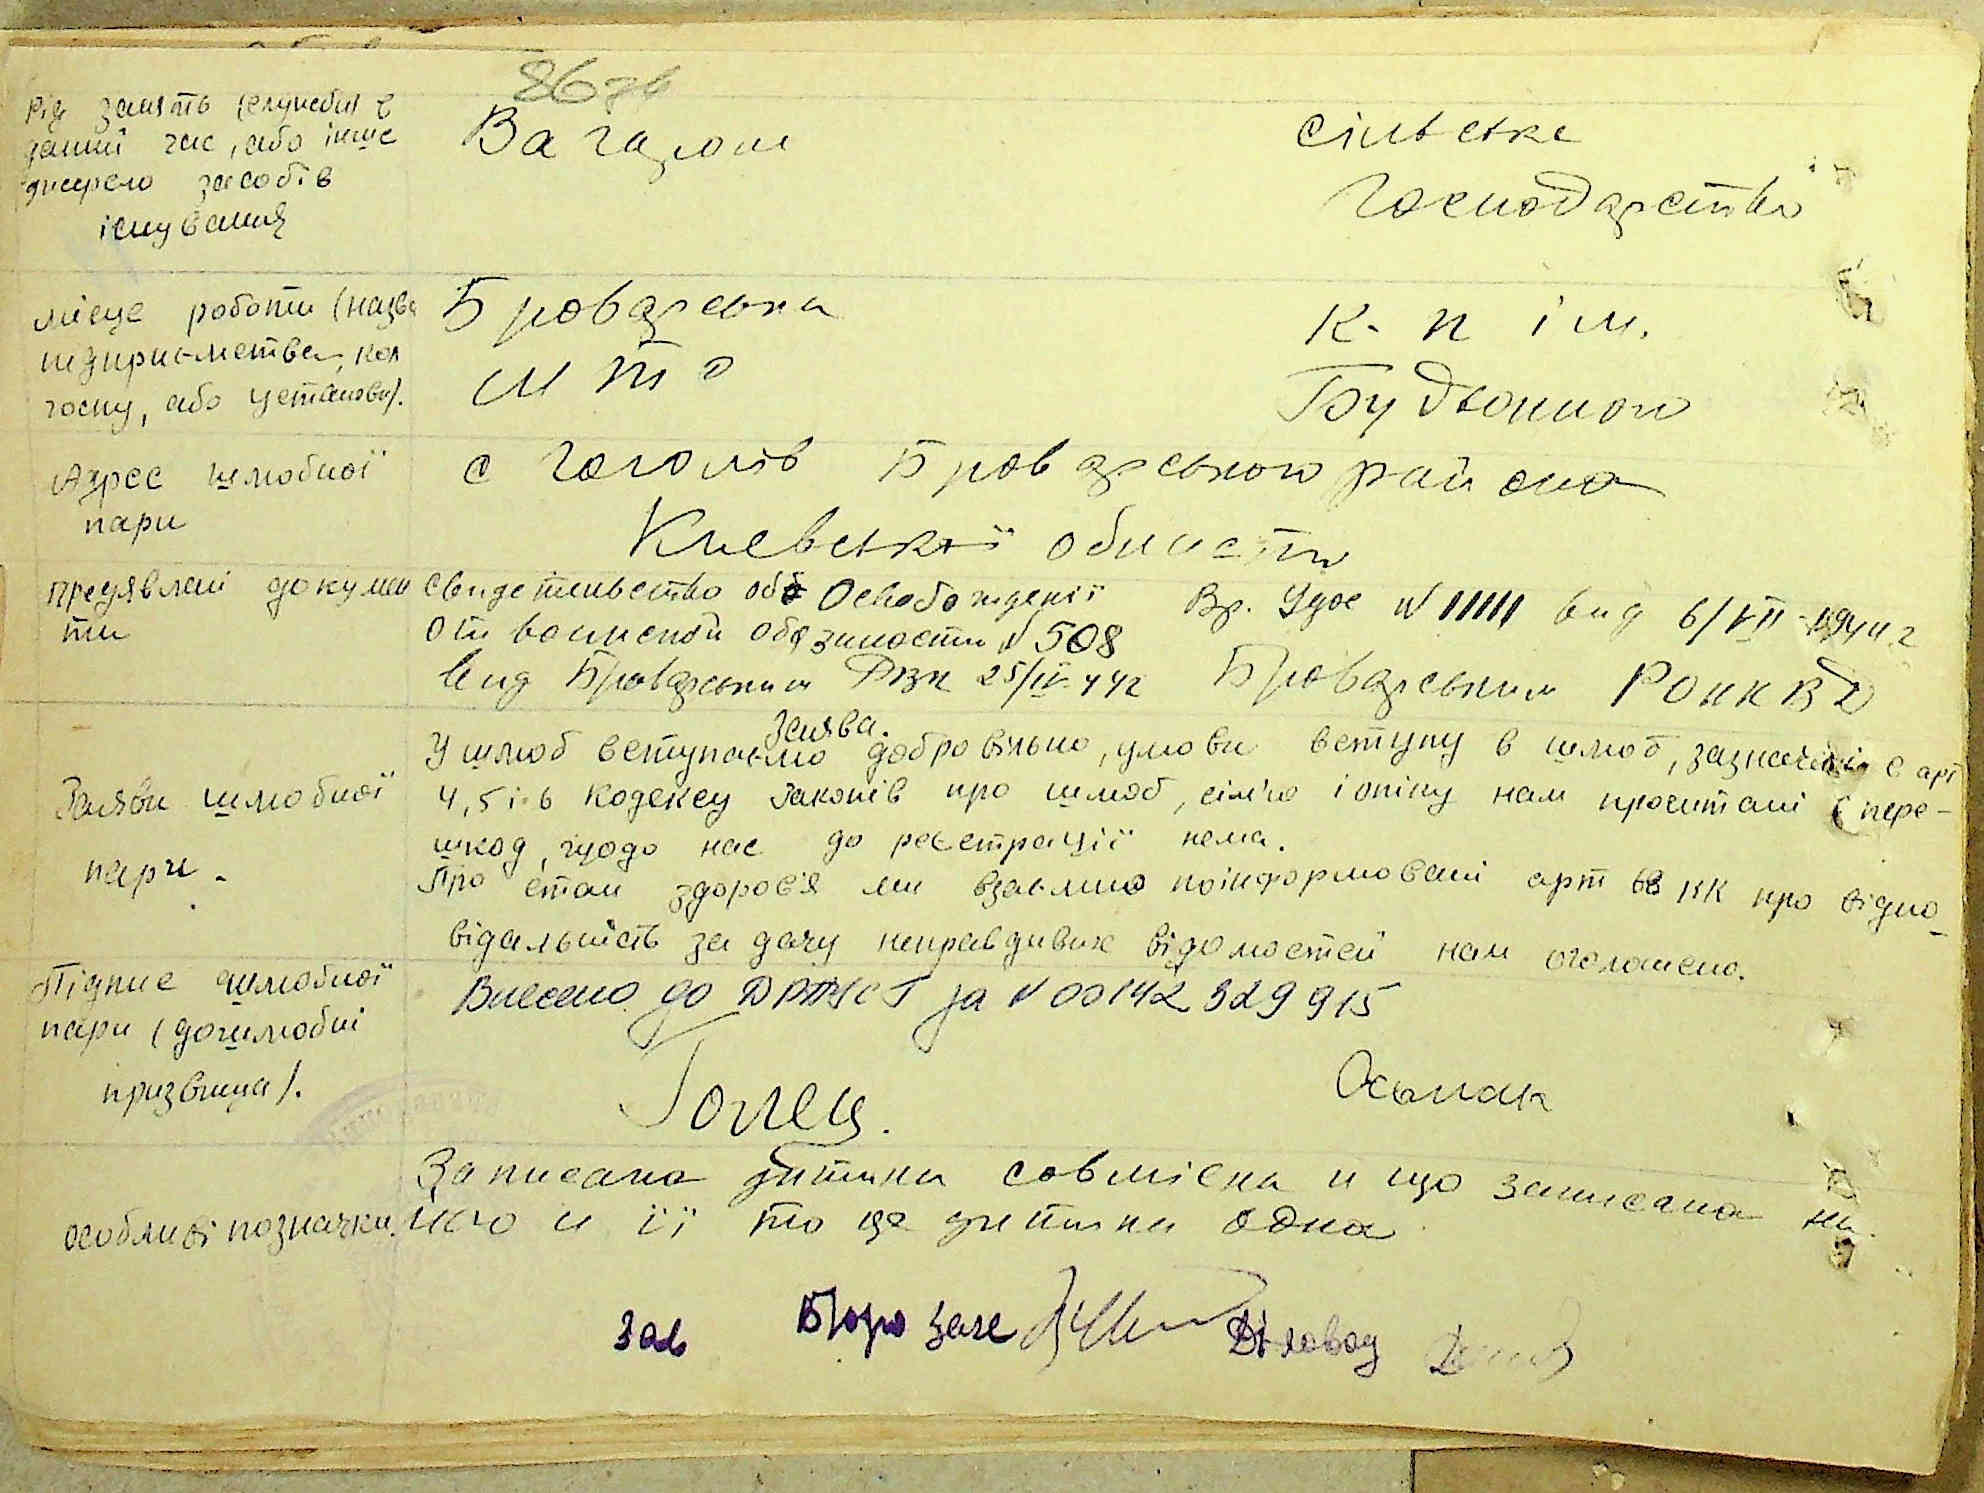 86 зв
Рід занять (служби) в
даний час, або інше
джерело засобів
існування
Вагаром
сільське
Господарство
місце роботи (назва
підприємства, кол
госпу, або установи).
Броварська
к-п ім.
Будьонного
Адрес шлюбної
пари
с Гоголів Броварського району
Киевської области
Предявлені докумен
ти
Свидетильство обо Освобождении
от воинской обязаности № 508
вид Броварським РВК 25/IV-44г
Вр. Удос № 11111 вид 6/VII-1944 г
Броварським РОНКВД
Заяви шлюбної
пари.
Заява.
У шлюб вступаємо добровільно, умови вступу в шлюб, зазначені в арт
4,5 і 6 Кодексу Законів про шлюб, сім'ю і опіку нам прочитані і пере-
шкод, щодо нас до реєстрації нема.
Про стан здоров'я ми взаємно поінформовані арт КК про відпо-
відальність за дачу неправдивих відомостей нам оголошено.
Підпис шлюбної
пари (дошлюбні
призвища).
Внесено до ДРАЦСГ за № 00142329915
Голец.
Осьмак
особливі позначки.
Записана дитина совмісна и що записана на
його и її то це дитина одна
Зав Бюро Загс
Діловод